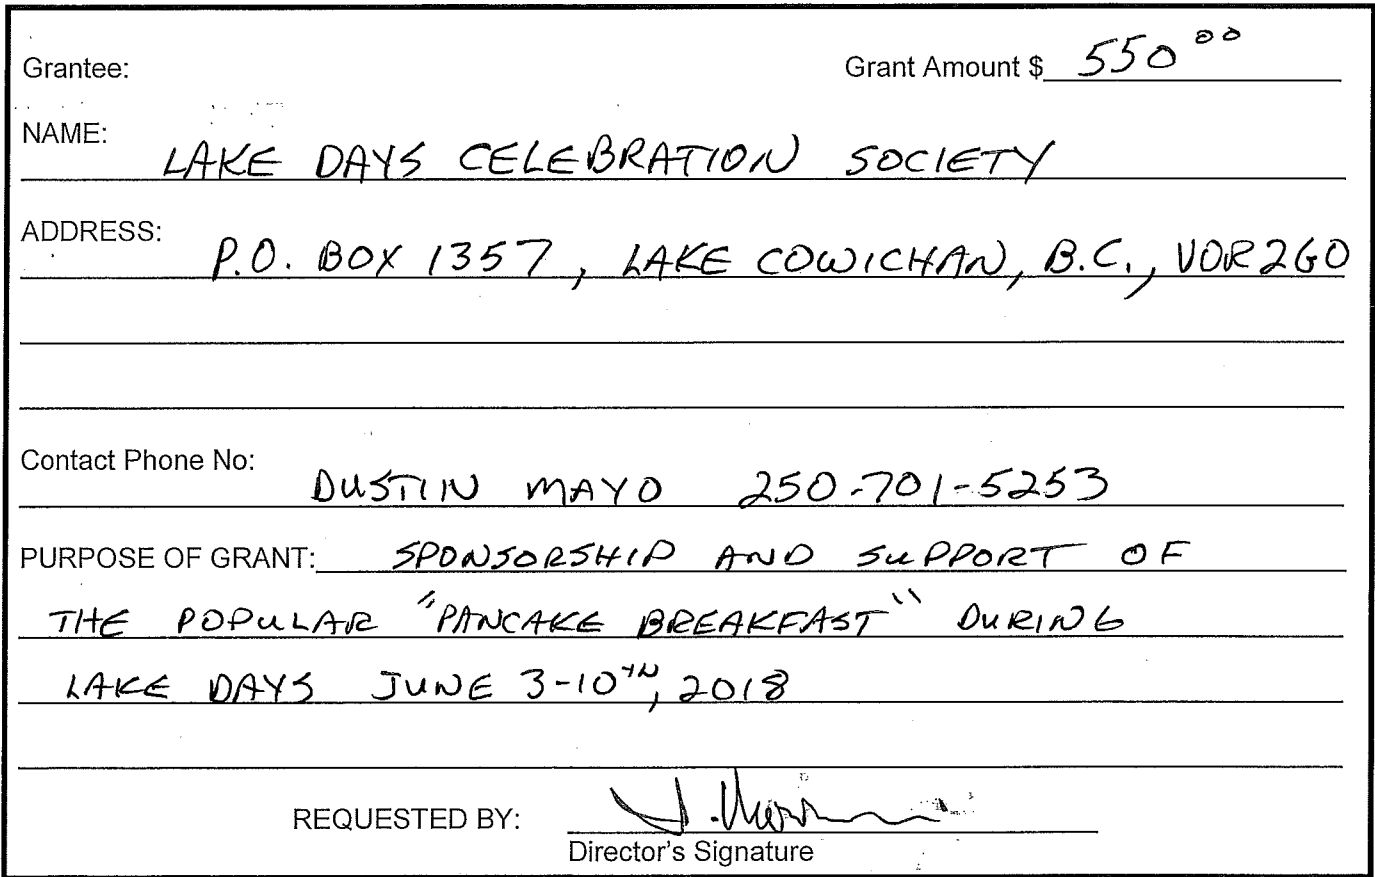 Grantee: Grant Amount $ 550 00
NAME: LAKE DAYS CELEBRATION SOCIETY
ADDRESS: P.O. BOX 1357, LAKE COWICHAN, B.C., V0R2G0
Contact Phone No: DUSTIN MAYO 250-701-5253
PURPOSE OF GRANT: SPONSORSHIP AND SUPPORT OF
THE POPULAR "PANCAKE BREAKFAST" DURING
LAKE DAYS JUNE 3-10TH, 2018
REQUESTED BY:
Director's Signature